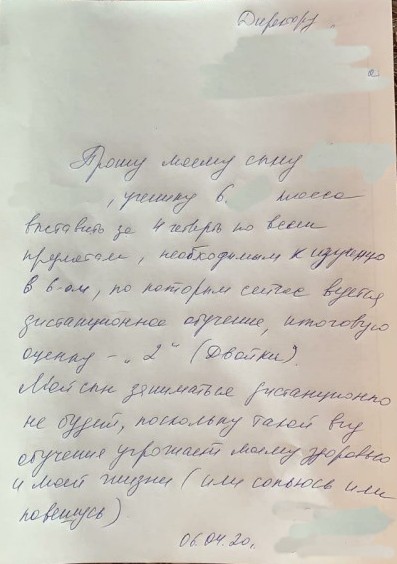 Директору
Прошу моему сыну
, ученику 6 класса
выставить за 4 четверть по всем
предметам, необходимым к изучению
в 6-ом, по которым сейчас ведется
дистанционное обучение, итоговую
оценку – „2“ (Двойки).
Мой сын заниматься дистанционно
не будет, поскольку такой вид
обучения угрожает моему здоровью
и моей жизни (или сопьюсь или
повешусь)
06.04.20г.